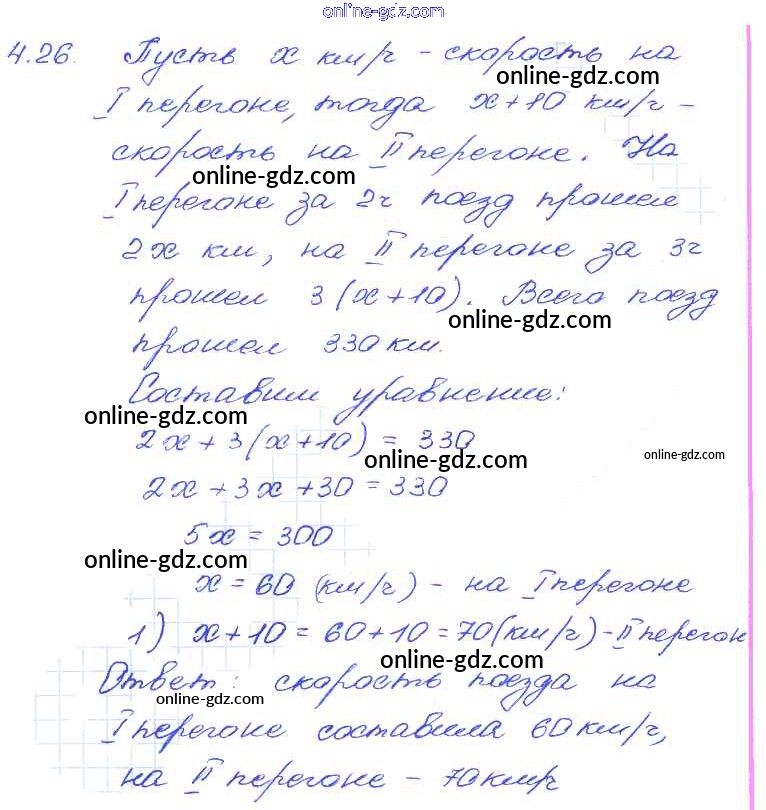 online-gdz.com
4.26. Пусть x км/ч - скорость на
online-gdz.com
I перегоне, тогда x+10 км/ч -
скорость на II перегоне. На
online-gdz.com
I перегоне за 2ч поезд прошел
2x км, на II перегоне за 3ч
прошел 3(x+10). Всего поезд
online-gdz.com
прошел 330 км.
Составим уравнение:
online-gdz.com
2x+3(x+10) = 330
online-gdz.com
online-gdz.com
2x+3x+30=330
5x=300
online-gdz.com
x=60 (км/ч) - на I перегоне
1) x+10=60+10=70(км/ч)-II перегон
online-gdz.com
Ответ: скорость поезда на
online-gdz.com
I перегоне составила 60км/ч,
на II перегоне - 70км/ч